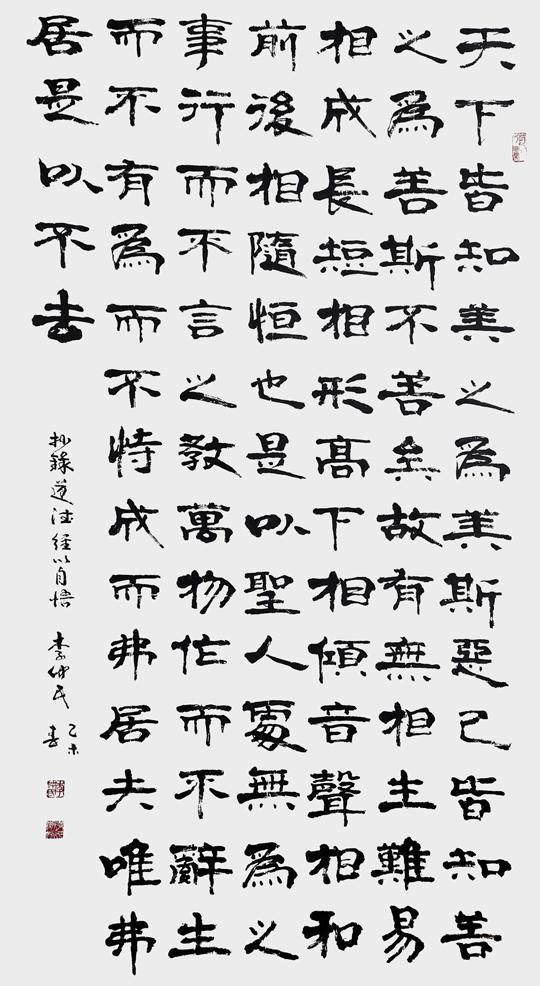 天下皆知美之為美斯惡已皆知善
之為善斯不善矣故有無相生難易
相成長短相形高下相傾音聲相和
前後相隨恒也是以聖人處無為之
事行而不言之教萬物作而不辭生
而不有為而不恃成而弗居夫唯弗
居是以不去
抄錄道德經以自悟 李仲民 乙未春